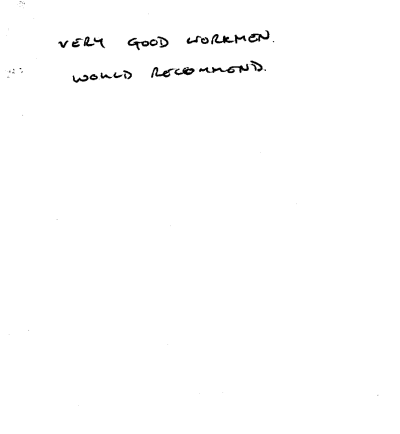 VERY GOOD WORKMEN.
WOULD RECOMMEND.